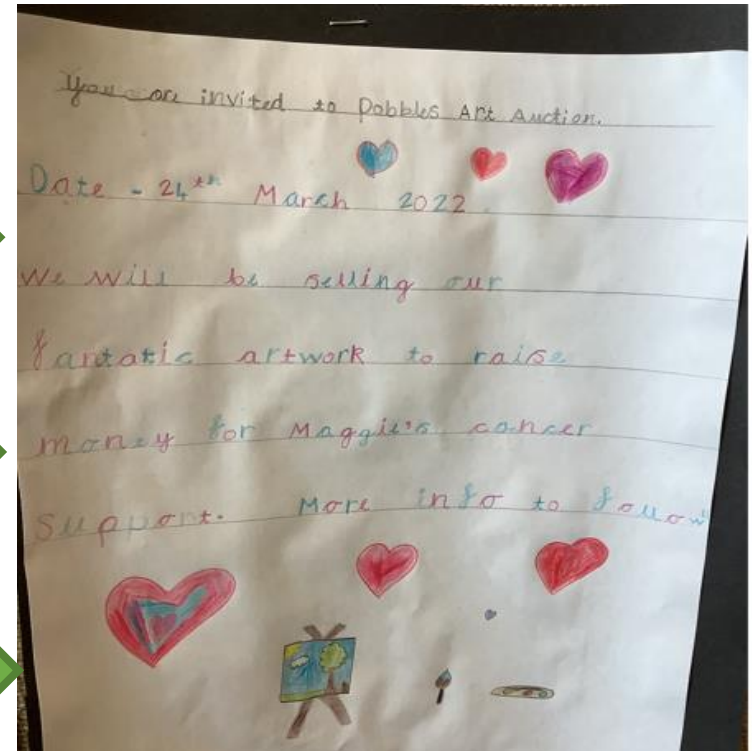 You are invited to Pobbles Art Auction.
Date - 24th March 2022
We will be selling our
fantatic artwork to raise
money for Maggie's cancer
support. More info to follow